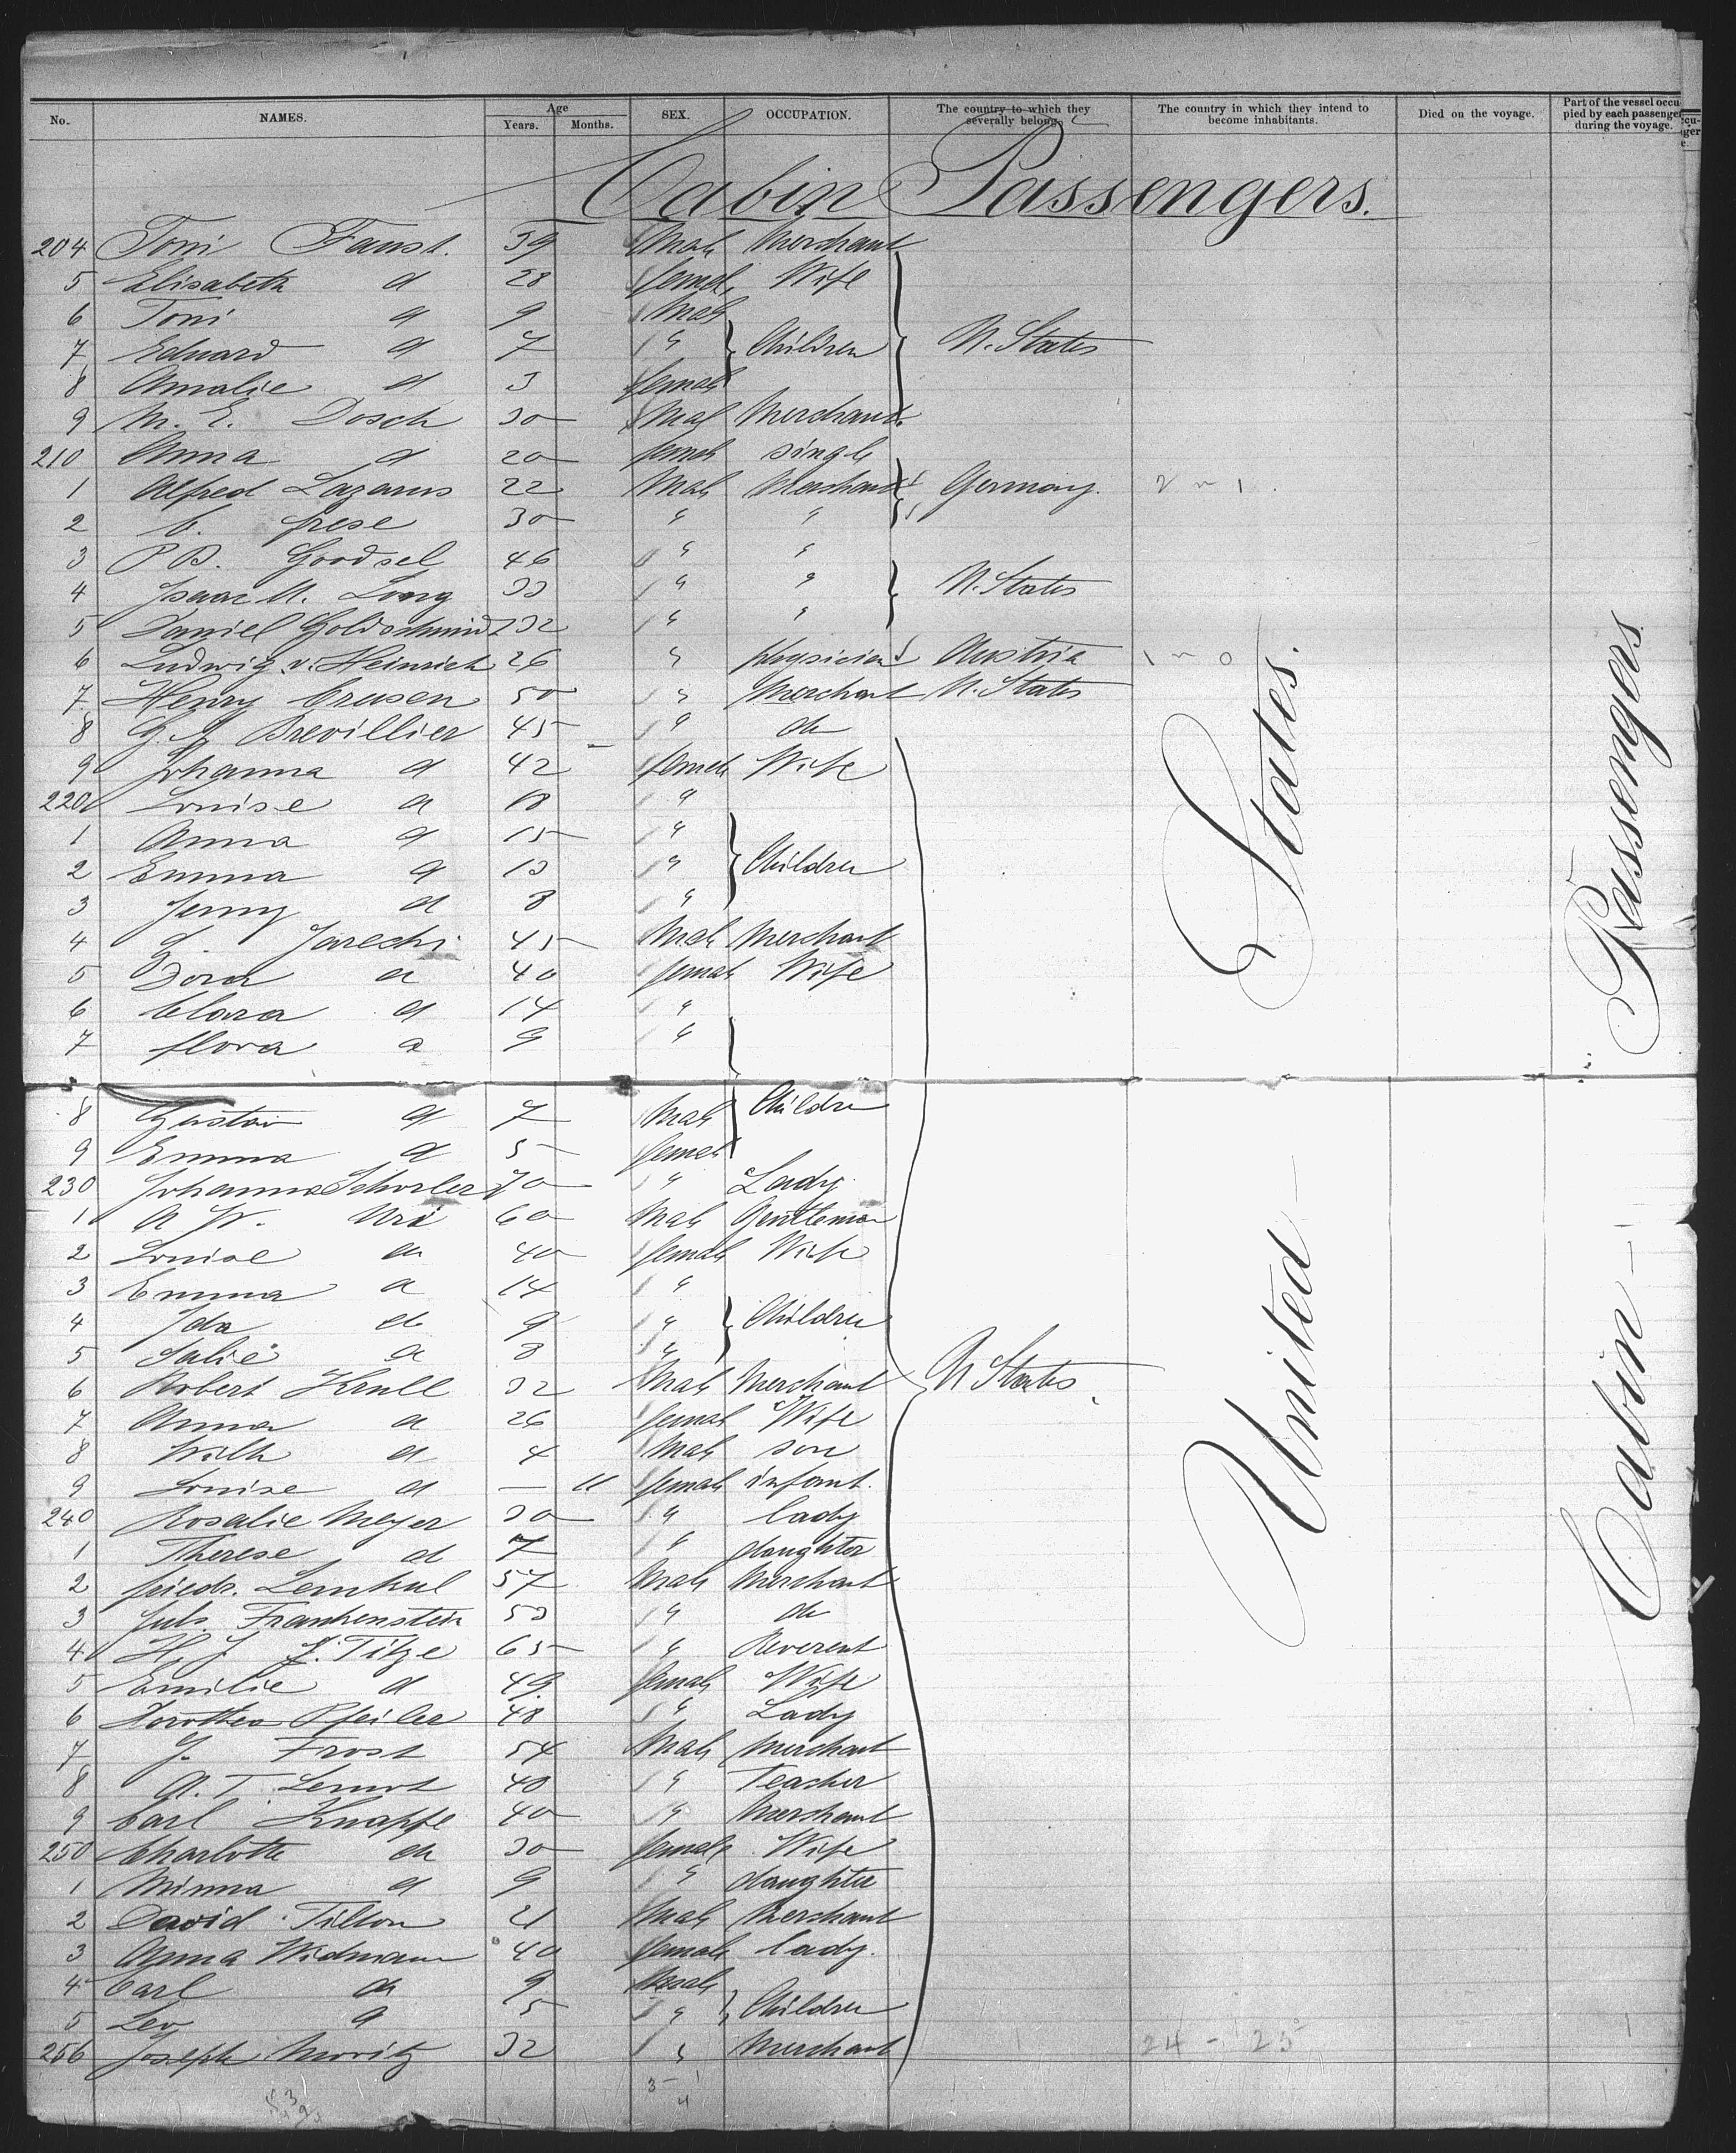 No. NAMES. Age Years. Months. SEX. OCCUPATION. The country to which they severally belong. The country in which they intend to become inhabitants. Died on the voyage. Part of the vessel occupied by each passenger during the voyage.
Cabin Passengers.
204 Toni Faust. 39 Male Merchant
5 Elisabeth d 28 female Wife
6 Toni d 9 Male
7 Eduard d 7 " Children U. States
8 Amalie d 3 female
9 M. E. Dosch 30 Male Merchant
210 Anna d 20 female single
1 Alfred Lazarus 22 Male Merchant Germany.
2 C. frese 30 " "
3 P B. Goodsel 46 " "
4 Isaac M. Long 33 " " U. States
5 Daniel Goldschmidt 32 " "
6 Ludwig v. Heinrich 26 " physician Austria
7 Henry Crusen 50 " Merchant U. States
8 G. A Brevillier 45 " do
9 Johanna d 42 female Wife
220 Louise d 18 "
1 Anna d 15 "
2 Emma d 13 " Children
3 Jenny d 8 "
4 G. Jarechi 45 Male Merchant
5 Dora d 40 female Wife
6 Clara d 14 "
7 flora d 9 "
8 Gustav d 7 Male Children
9 Emma d 5 female
230 Johanna 70 " Lady.
1 A W. 60 Male Gentleman
2 Louise do 40 female Wife
3 Emma d 14 "
4 Ida do 9 " Children
5 Julie d 8 "
6 Robert Krull 32 Male Merchant U States
7 Anna d 26 female Wife
8 Wilh d 4 Male son
9 Louise d — 11 female infant.
240 Rosalie Meyer 30 " lady
1 Therese d 7 " daughter
2 friedr. Lemkul 57 Male Merchant
3 Jul. Frankenstein 53 " do
4 H. J. Titze 65 " Reverent
5 Emilie d 49 female Wife
6 Dorothea Pfeiler 48 " Lady
7 J. Frost 54 Male Merchant
8 A. T. 40 " Teacher
9 Carl Knappe 40 " Merchant
250 Charlotte do 30 female Wife
1 Minna d 9 " daughter
2 David Tilton 21 Male Merchant
3 Anna Widmann 40 female lady.
4 Carl do 9 Male
5 Leo d 5 " Children
256 Joseph Moritz 32 " Merchant
United States.
Cabin Passengers
24 - 25